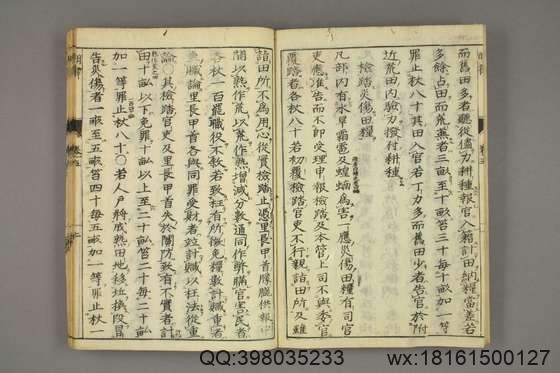 而舊田多者聽從儘力耕種報官入籍計田納糧當差若
多餘占田而荒蕪者三畝至十畝笞三十每十畝加一等
罪止杖八十其田入官若丁力多而舊田少者告官於附
近荒田內驗力撥付耕種
檢踏災傷田糧
凡部內有水旱霜雹及蝗蝻為害一應災傷田糧有司官
吏應准告而不即受理申報檢踏及本管上司不與委官
覆踏者各杖八十若初覆檢踏官吏不行親詣田所及雖
詣田所不為用心從實檢踏止憑里長甲首朦朧供報中間
以熟作荒以荒作熟增減分數通同作弊瞞官害民者
各杖一百罷職役不敘若致枉有所徵免糧數計贓重者
坐贓論里長甲首各與同罪受財者並計贓以枉法從重
論其檢踏官吏及里長甲首失於關防致有不實者計
田十畝以下免罪十畝以上至二十畝笞二十每二十畝
加一等罪止杖八十○若人戶將成熟田地移坵換段冒
告災傷者一畝至五畝笞四十每五畝加一等罪止杖
QQ:398035233
wx:18161500127